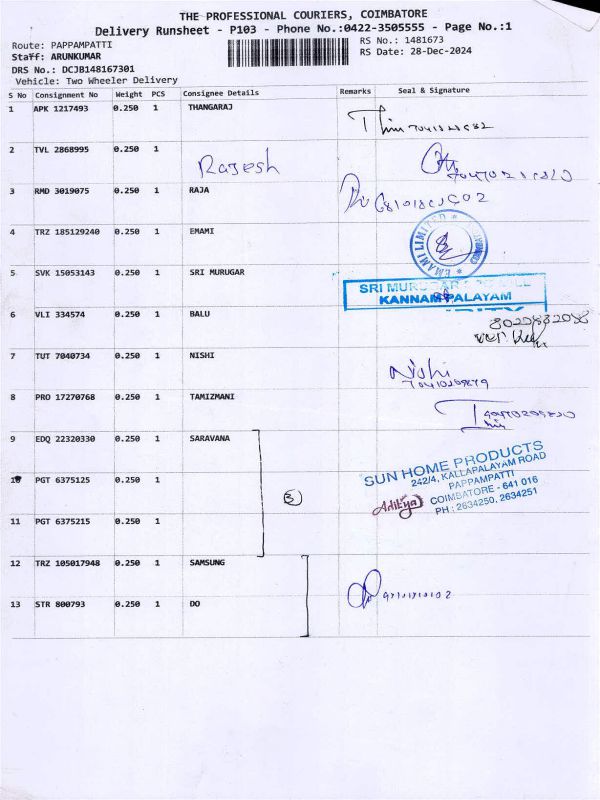 THE PROFESSIONAL COURIERS, COIMBATORE
Delivery Runsheet - P103 - Phone No.:0422-3505555 - Page No.:1
Route: PAPPAMPATTI
RS No.: 1481673
Staff: ARUNKUMAR
RS Date: 28-Dec-2024
DRS No.: DCJB148167301
Vehicle: Two Wheeler Delivery
S No Consignment No Weight PCS Consignee Details Remarks Seal & Signature
1 APK 1217493 0.250 1 THANGARAJ
2 TVL 2868995 0.250 1 Rajesh
3 RMD 3019075 0.250 1 RAJA
4 TRZ 185129240 0.250 1 EMAMI
EMAMI LIMITED
5 SVK 15053143 0.250 1 SRI MURUGAR
SRI MURUGAR
KANNAMPALAYAM
6 VLI 334574 0.250 1 BALU
7 TUT 7040734 0.250 1 NISHI Nishi
8 PRO 17270768 0.250 1 TAMIZMANI
9 EDQ 22320330 0.250 1 SARAVANA
SUN HOME PRODUCTS
242/4, KALLAPALAYAM ROAD
PAPPAMPATTI
COIMBATORE - 641 016
PH : 2634250, 2634251
Aditya
10 PGT 6375125 0.250 1
3
11 PGT 6375215 0.250 1
12 TRZ 105017948 0.250 1 SAMSUNG
13 STR 800793 0.250 1 DO